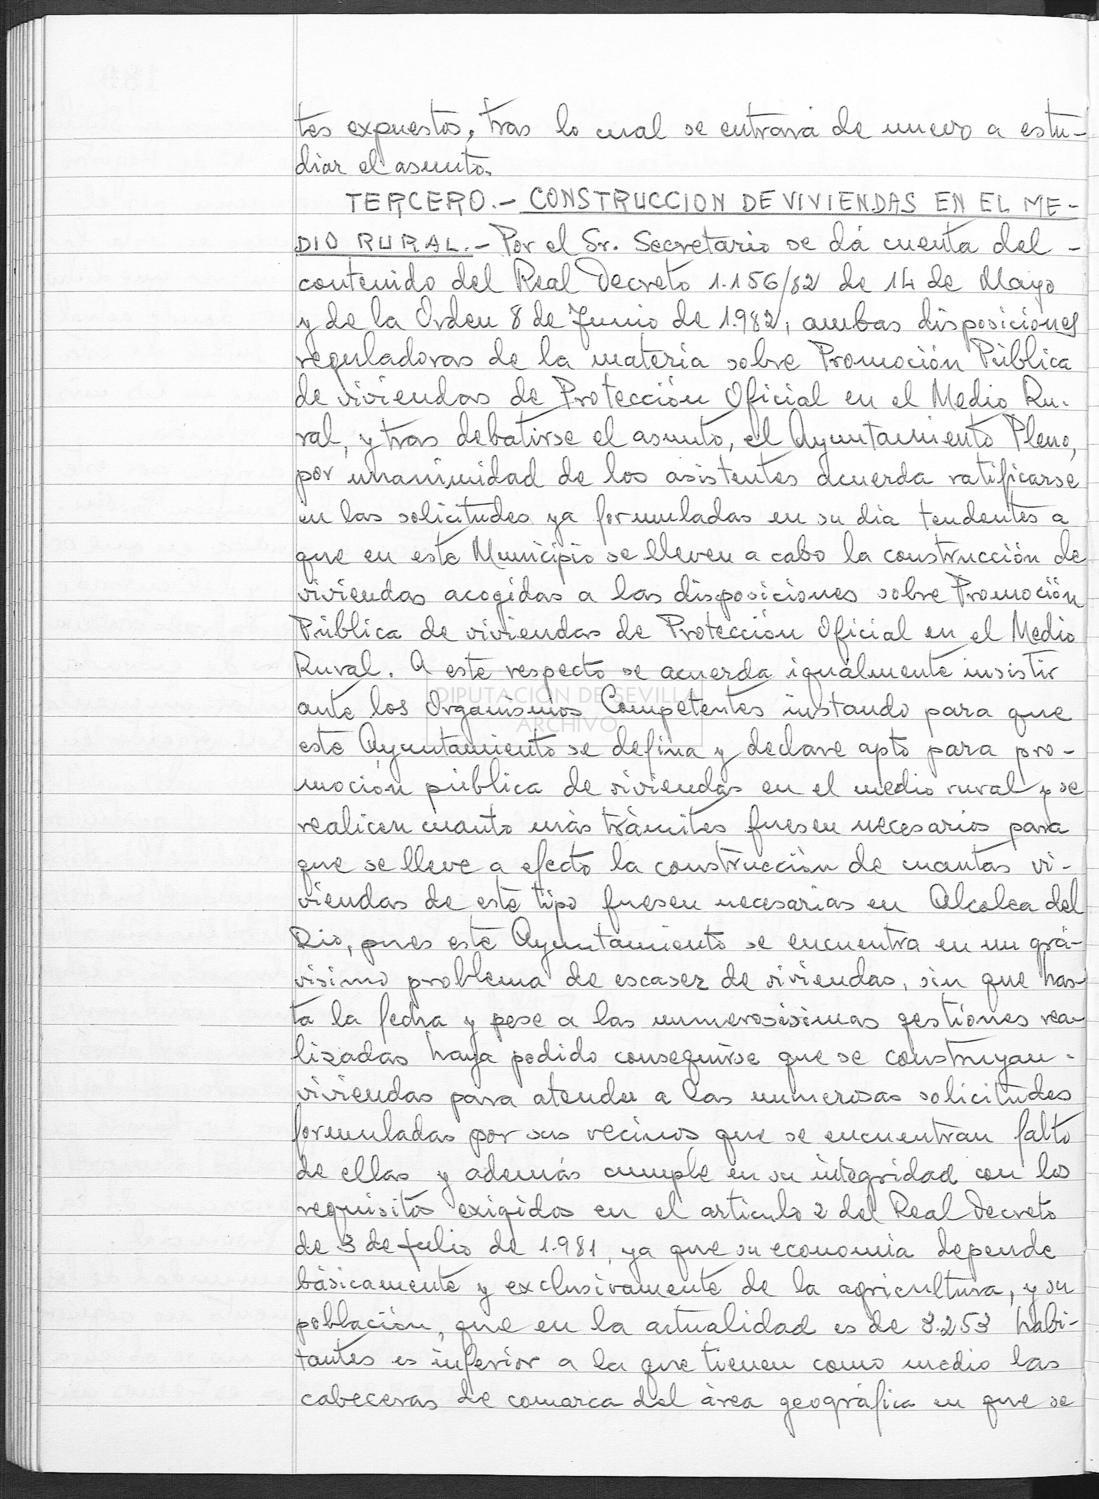 tes expuestos, tras lo cual se entrará de nuevo a estu-
diar el asunto.
TERCERO.- CONSTRUCCION DE VIVIENDAS EN EL ME-
DIO RURAL.- Por el Sr. Secretario se dá cuenta del -
contenido del Real Decreto 1.156/82 de 14 de Mayo
y de la Orden 8 de Junio de 1.982, ambas disposiciones
reguladoras de la materia sobre Promoción Pública
de viviendas de Protección Oficial en el Medio Ru-
ral, y tras debatirse el asunto, el Ayuntamiento Pleno,
por unanimidad de los asistentes acuerda ratificarse
en las solicitudes ya formuladas en su dia tendentes a
que en este Municipio se lleven a cabo la construcción de
viviendas acogidas a las disposiciones sobre Promoción
Pública de viviendas de Protección Oficial en el Medio
Rural. A este respecto se acuerda igualmente insistir
DIPUTACIÓN DE SEVILLA
ante los Organismos Competentes instando para que
ARCHIVO
este Ayuntamiento se defina y declare apto para pro-
moción pública de viviendas en el medio rural y se
realicen cuanto más trámites fuesen necesarios para
que se lleve a efecto la construcción de cuantas vi-
viendas de este tipo fuesen necesarias en Alcolea del
Rio, pues este Ayuntamiento se encuentra en un grá-
visimo problema de escasez de viviendas, sin que has-
ta la fecha y pese a las numerosisimas gestiones rea-
lizadas haya podido conseguirse que se construyan -
viviendas para atender a las numerosas solicitudes
formuladas por sus vecinos que se encuentran falto
de ellas y además cumple en su integridad con los
requisitos exigidos en el articulo 2 del Real Decreto
de 3 de Julio de 1.981, ya que su economía depende
básicamente y exclusivamente de la agricultura, y su
población, que en la actualidad es de 3.253 habi-
tantes es inferior a la que tienen como medio las
cabeceras de comarca del área geográfica en que se